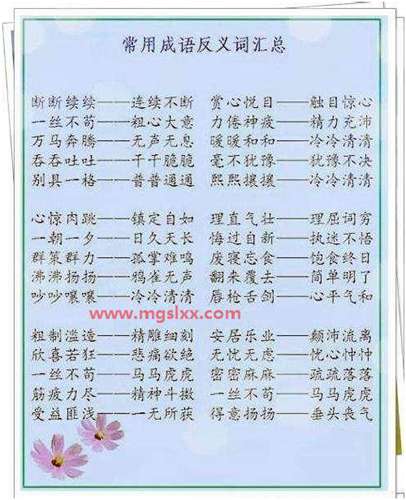 常用成语反义词汇总
断断续续——连续不断 赏心悦目——触目惊心
一丝不苟——粗心大意 力倦神疲——精力充沛
万马奔腾——无声无息 暖暖和和——冷冷清清
吞吞吐吐——干干脆脆 毫不犹豫——犹豫不决
别具一格——普普通通 熙熙攘攘——冷冷清清
心惊肉跳——镇定自如 理直气壮——理屈词穷
一朝一夕——日久天长 悔过自新——执迷不悟
群策群力——孤掌难鸣 废寝忘食——饱食终日
沸沸扬扬——鸦雀无声 翻来覆去——简单明了
吵吵嚷嚷——冷冷清清 唇枪舌剑——心平气和
www.mgslxx.com
粗制滥造——精雕细刻 安居乐业——颠沛流离
欣喜若狂——悲痛欲绝 无忧无虑——忧心忡忡
一丝不苟——马马虎虎 密密麻麻——疏疏落落
筋疲力尽——精神斗擞 一丝不苟——马马虎虎
受益匪浅——一无所获 得意扬扬——垂头丧气